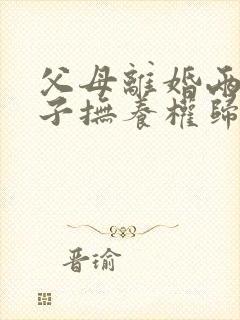 父母離婚兩
子撫養權歸
晋瑜